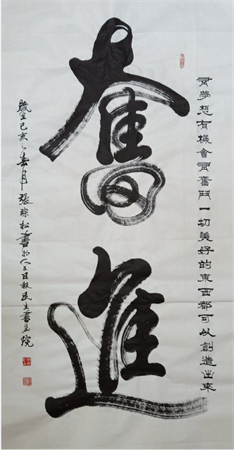 有夢想有機會有奮鬥一切美好的東西都可以創造出來
奮進
歲在己亥春月張松書於人民日報民生書画院